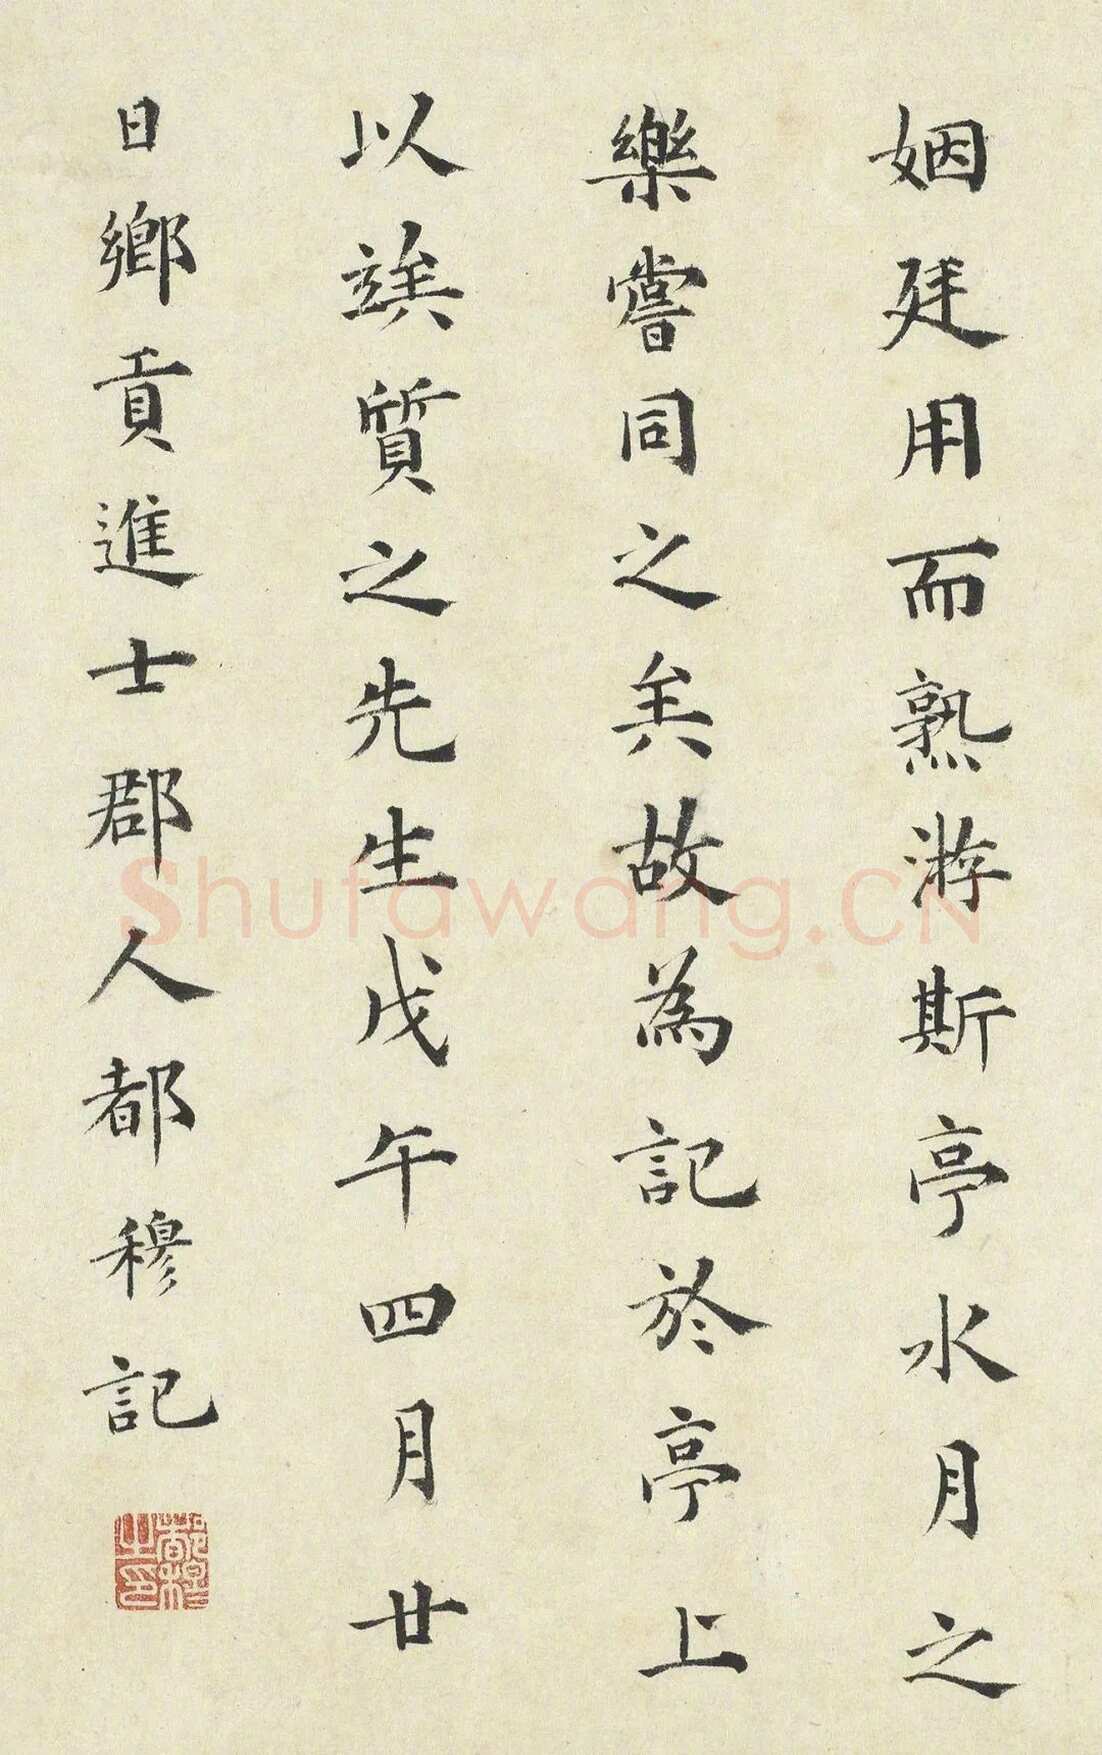 姻廷用而熟游斯亭水月之
樂嘗同之矣故為記於亭上
以竢質之先生戊午四月廿
日鄉貢進士郡人都穆記
都穆之印
Shufawang.CN